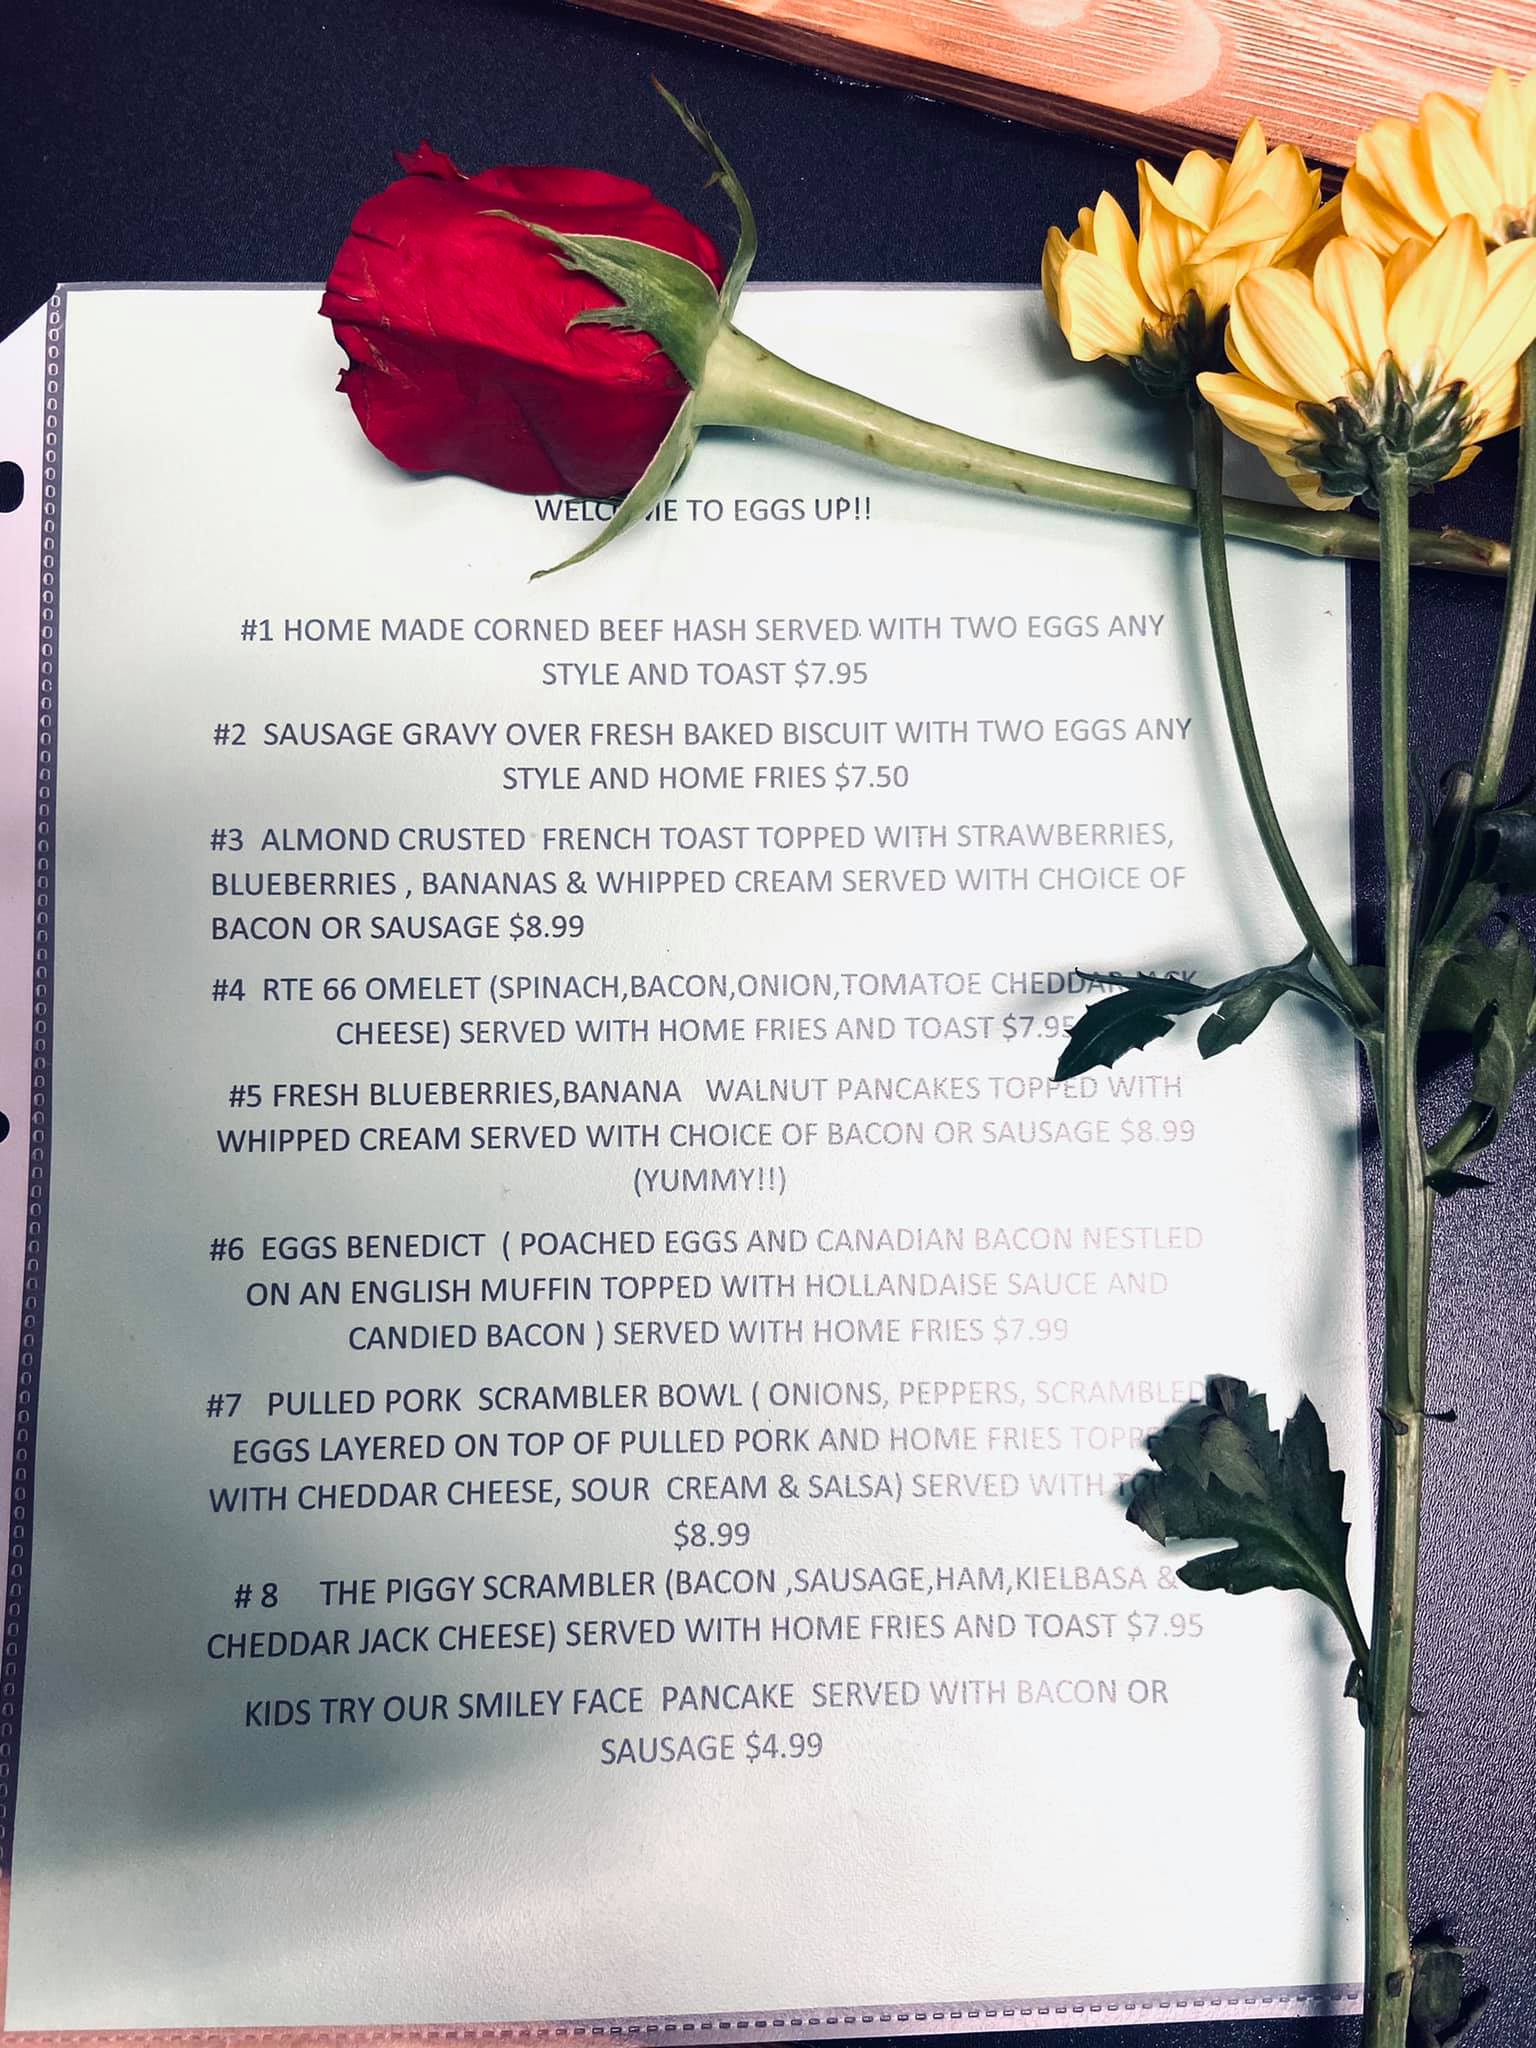 TO EGGS UP!!
#1 HOME MADE CORNED BEEF HASH SERVED WITH TWO EGGS ANY
STYLE AND TOAST $7.95
#2 SAUSAGE GRAVY OVER FRESH BAKED BISCUIT WITH TWO EGGS ANY
STYLE AND HOME FRIES $7.50
#3 ALMOND CRUSTED FRENCH TOAST TOPPED WITH STRAWBERRIES,
BLUEBERRIES , BANANAS & WHIPPED CREAM SERVED WITH CHOICE OF
BACON OR SAUSAGE $8.99
#4 RTE 66 OMELET (SPINACH,BACON,ONION,TOMATOE CHEDDAR JACK
CHEESE) SERVED WITH HOME FRIES AND TOAST $7.95
#5 FRESH BLUEBERRIES,BANANA WALNUT PANCAKES TOPPED WITH
WHIPPED CREAM SERVED WITH CHOICE OF BACON OR SAUSAGE $8.99
(YUMMY!!)
#6 EGGS BENEDICT ( POACHED EGGS AND CANADIAN BACON NESTLED
ON AN ENGLISH MUFFIN TOPPED WITH HOLLANDAISE SAUCE AND
CANDIED BACON ) SERVED WITH HOME FRIES $7.99
#7 PULLED PORK SCRAMBLER BOWL ( ONIONS, PEPPERS, SCRAMBLED
EGGS LAYERED ON TOP OF PULLED PORK AND HOME FRIES
WITH CHEDDAR CHEESE, SOUR CREAM & SALSA) SERVED WITH
$8.99
# 8 THE PIGGY SCRAMBLER (BACON ,SAUSAGE,HAM,KIELBASA &
CHEDDAR JACK CHEESE) SERVED WITH HOME FRIES AND TOAST $7.95
KIDS TRY OUR SMILEY FACE PANCAKE SERVED WITH BACON OR
SAUSAGE $4.99